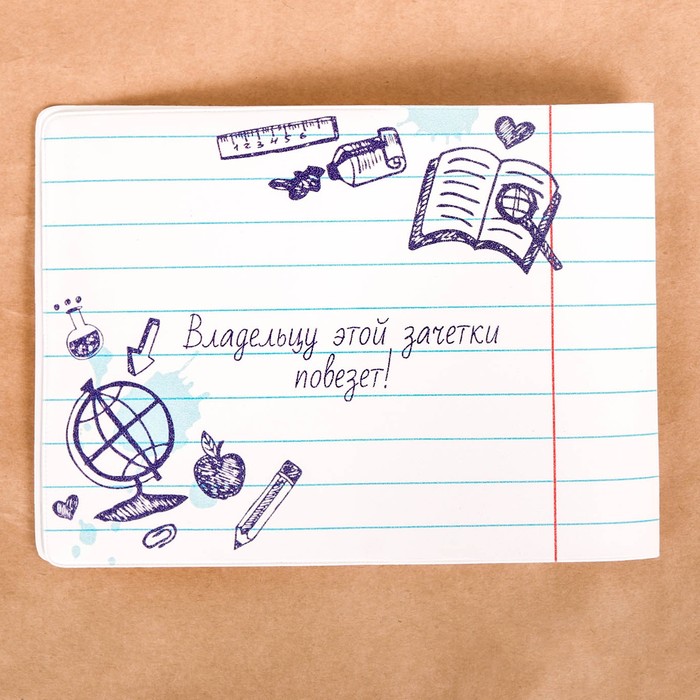 1 2 3 4 5 6
Владельцу этой зачетки
повезет!